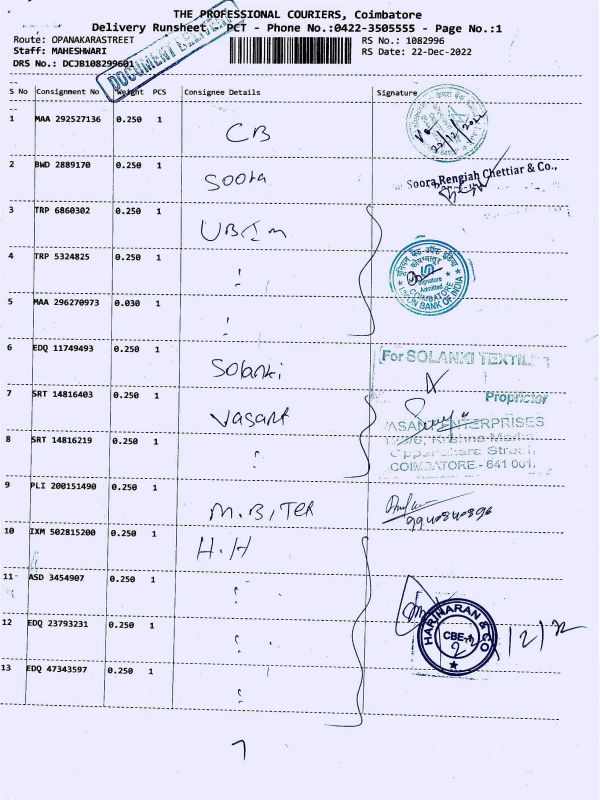 THE PROFESSIONAL COURIERS, Coimbatore
Delivery Runsheet - PCT - Phone No.:0422-3505555 - Page No.:1
Route: OPANAKARASTREET
Staff: MAHESHWARI
DRS No.: DCJB108299601
RS No.: 1082996
RS Date: 22-Dec-2022
DOCUMENT
S No Consignment No Weight PCS Consignee Details Signature
1 MAA 292527136 0.250 1 CB
22/12/22
2 BWD 2889170 0.250 1 Soora
Soora Rengiah Chettiar & Co.,
3 TRP 6860302 0.250 1 UBIM
4 TRP 5324825 0.250 1
यूनियन बैंक ऑफ इंडिया
Signature
Admitted
COIMBATORE
UNION BANK OF INDIA
5 MAA 296270973 0.030 1
6 EDQ 11749493 0.250 1 Solanki
For SOLANKI TEXTILES
Proprietor
7 SRT 14816403 0.250 1 Vasant
VASANT ENTERPRISES
Krishna Market
Oppanakara Street,
COIMBATORE - 641 001.
8 SRT 14816219 0.250 1
9 PLI 200151490 0.250 1 M.B, Ter
9940840896
10 IXM 502815200 0.250 1 H.H
11 ASD 3454907 0.250 1
HARIHARAN & CO
CBE-1
12 EDQ 23793231 0.250 1
13 EDQ 47343597 0.250 1
7